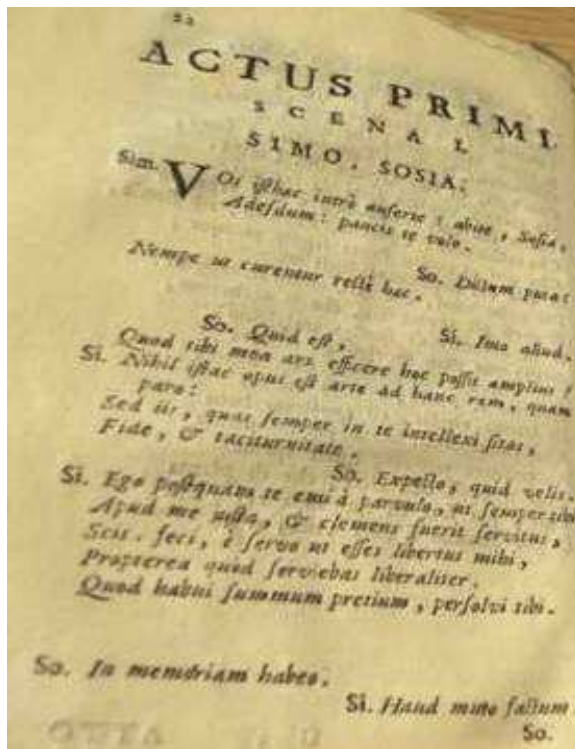 52
ACTUS PRIMI
SCENA I.
SIMO, SOSIA.
Sim. VOs iſthæc intrò auferte: abite, Soſia,
Adeſdum: paucis te volo.
So. Dictum puta:
Nempe ut curentur rectè hæc.
Si. Imo aliud.
So. Quid eſt,
Quod tibi mea ars efficere hoc poſſit amplius?
Si. Nihil iſtac opus eſt arte ad hanc rem, quam
paro:
Sed iis, quas ſemper in te intellexi ſitas,
Fide, & taciturnitate.
So. Expecto, quid velis.
Si. Ego poſtquam te emi à parvulo, ut ſemper tibi
Apud me juſta, & clemens fuerit ſervitus,
Scis. feci, è ſervo ut eſſes libertus mihi,
Propterea quod ſerviebas liberaliter.
Quod habui ſummum pretium, perſolvi tibi.
So. In memoriam habeo.
Si. Haud muto factum
So.